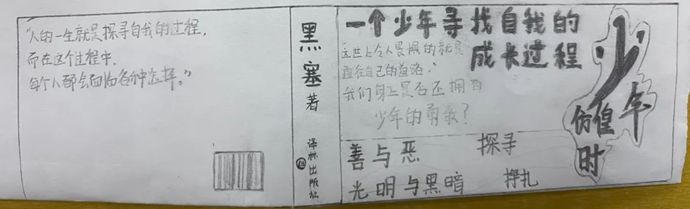 “人的一生就是探寻自我的过程，
而在这个过程中，
每个人都会面临各种选择。”
黑塞 著
译林出版社
一个少年寻找自我的
成长过程
这世上令人畏惧的就是
通往自己的道路。
我们身上是否还拥有
少年的勇敢？
善与恶
探寻
光明与黑暗
挣扎
少年
彷徨
时